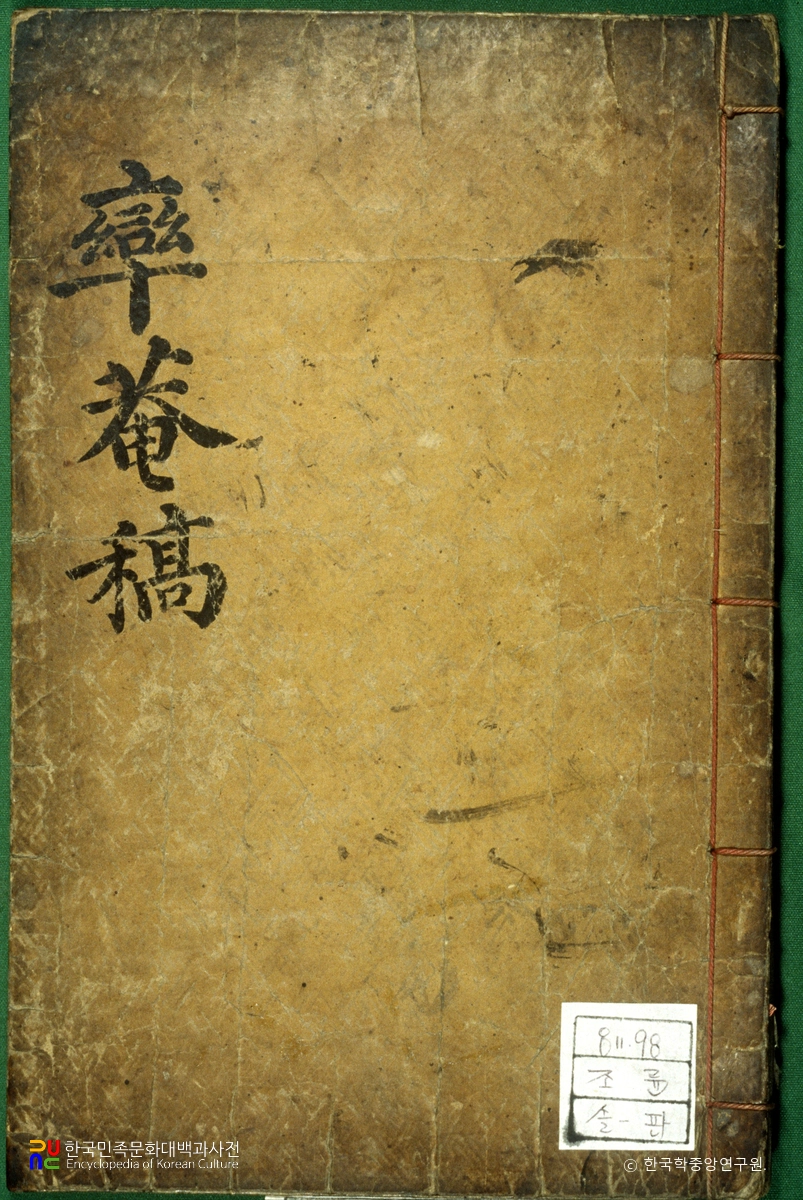 率菴稿
811.98
조 륜
솔-판
한국민족문화대백과사전
Encyclopedia of Korean Culture
© 한국학중앙연구원.